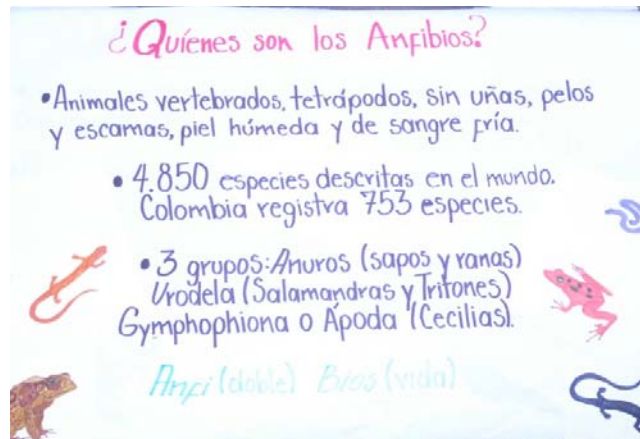 ¿Quíenes son los Anfibios?
•Animales vertebrados, tetrápodos, sin uñas, pelos
y escamas, piel húmeda y de sangre fría.
• 4.850 especies descritas en el mundo.
Colombia registra 753 especies.
• 3 grupos: Anuros (sapos y ranas)
Urodela (Salamandras y Tritones)
Gymphophiona o Apoda (Cecilias).
Anfi (doble) Bios (vida)